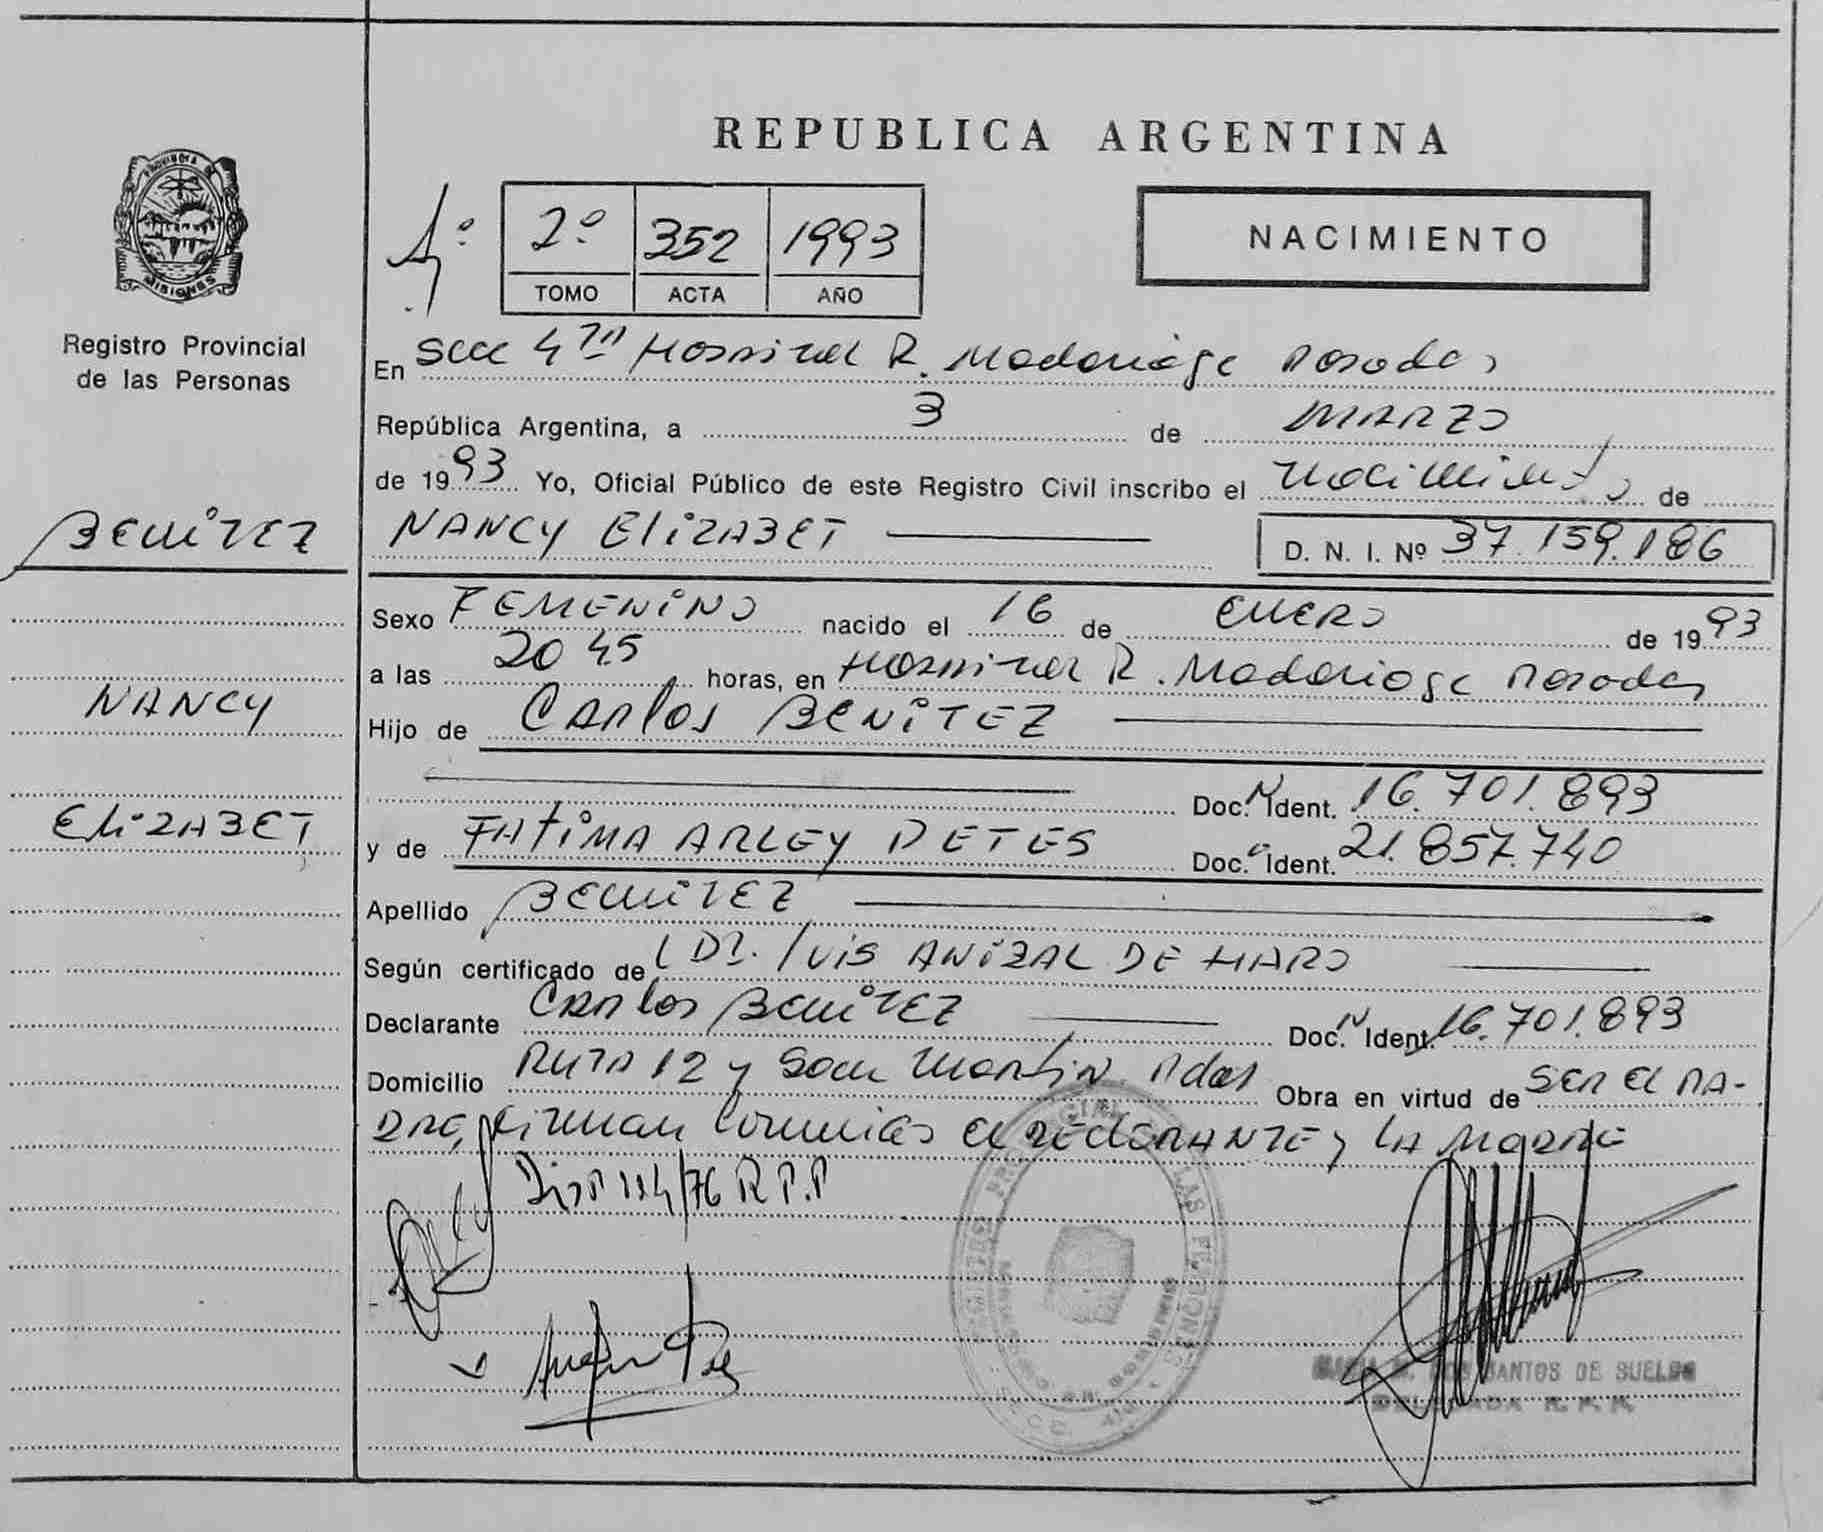 REPUBLICA ARGENTINA
2º 352 1993
TOMO ACTA AÑO
NACIMIENTO
PROVINCIA DE
MISIONES
Registro Provincial
de las Personas
BENITEZ
NANCY
ELIZABET
En Secc 4ta Hospital R. Madariaga Posadas
República Argentina, a 3 de MARZO
de 1993 Yo, Oficial Público de este Registro Civil inscribo el nacimiento de
NANCY ELIZABET D. N. I. Nº 37.159.186
Sexo FEMENINO nacido el 16 de ENERO de 1993
a las 20 45 horas, en Hospital R. Madariaga Posadas
Hijo de CARLOS BENITEZ
Doc. N Ident. 16.701.893
y de FATIMA ARLEY PETES Doc. Ident. 21.857.740
Apellido BENITEZ
Según certificado de DR. LUIS ANIBAL DE HARO
Declarante CARLOS BENITEZ Doc. N Ident. 16.701.893
Domicilio RUTA 12 y San Martin Pdas Obra en virtud de SER EL PA-
DRE, firman conmigo el DECLARANTE y LA MADRE
Disp 114/76 R.P.P
DOS SANTOS DE SUELDO
DELEGADA R. P. P.